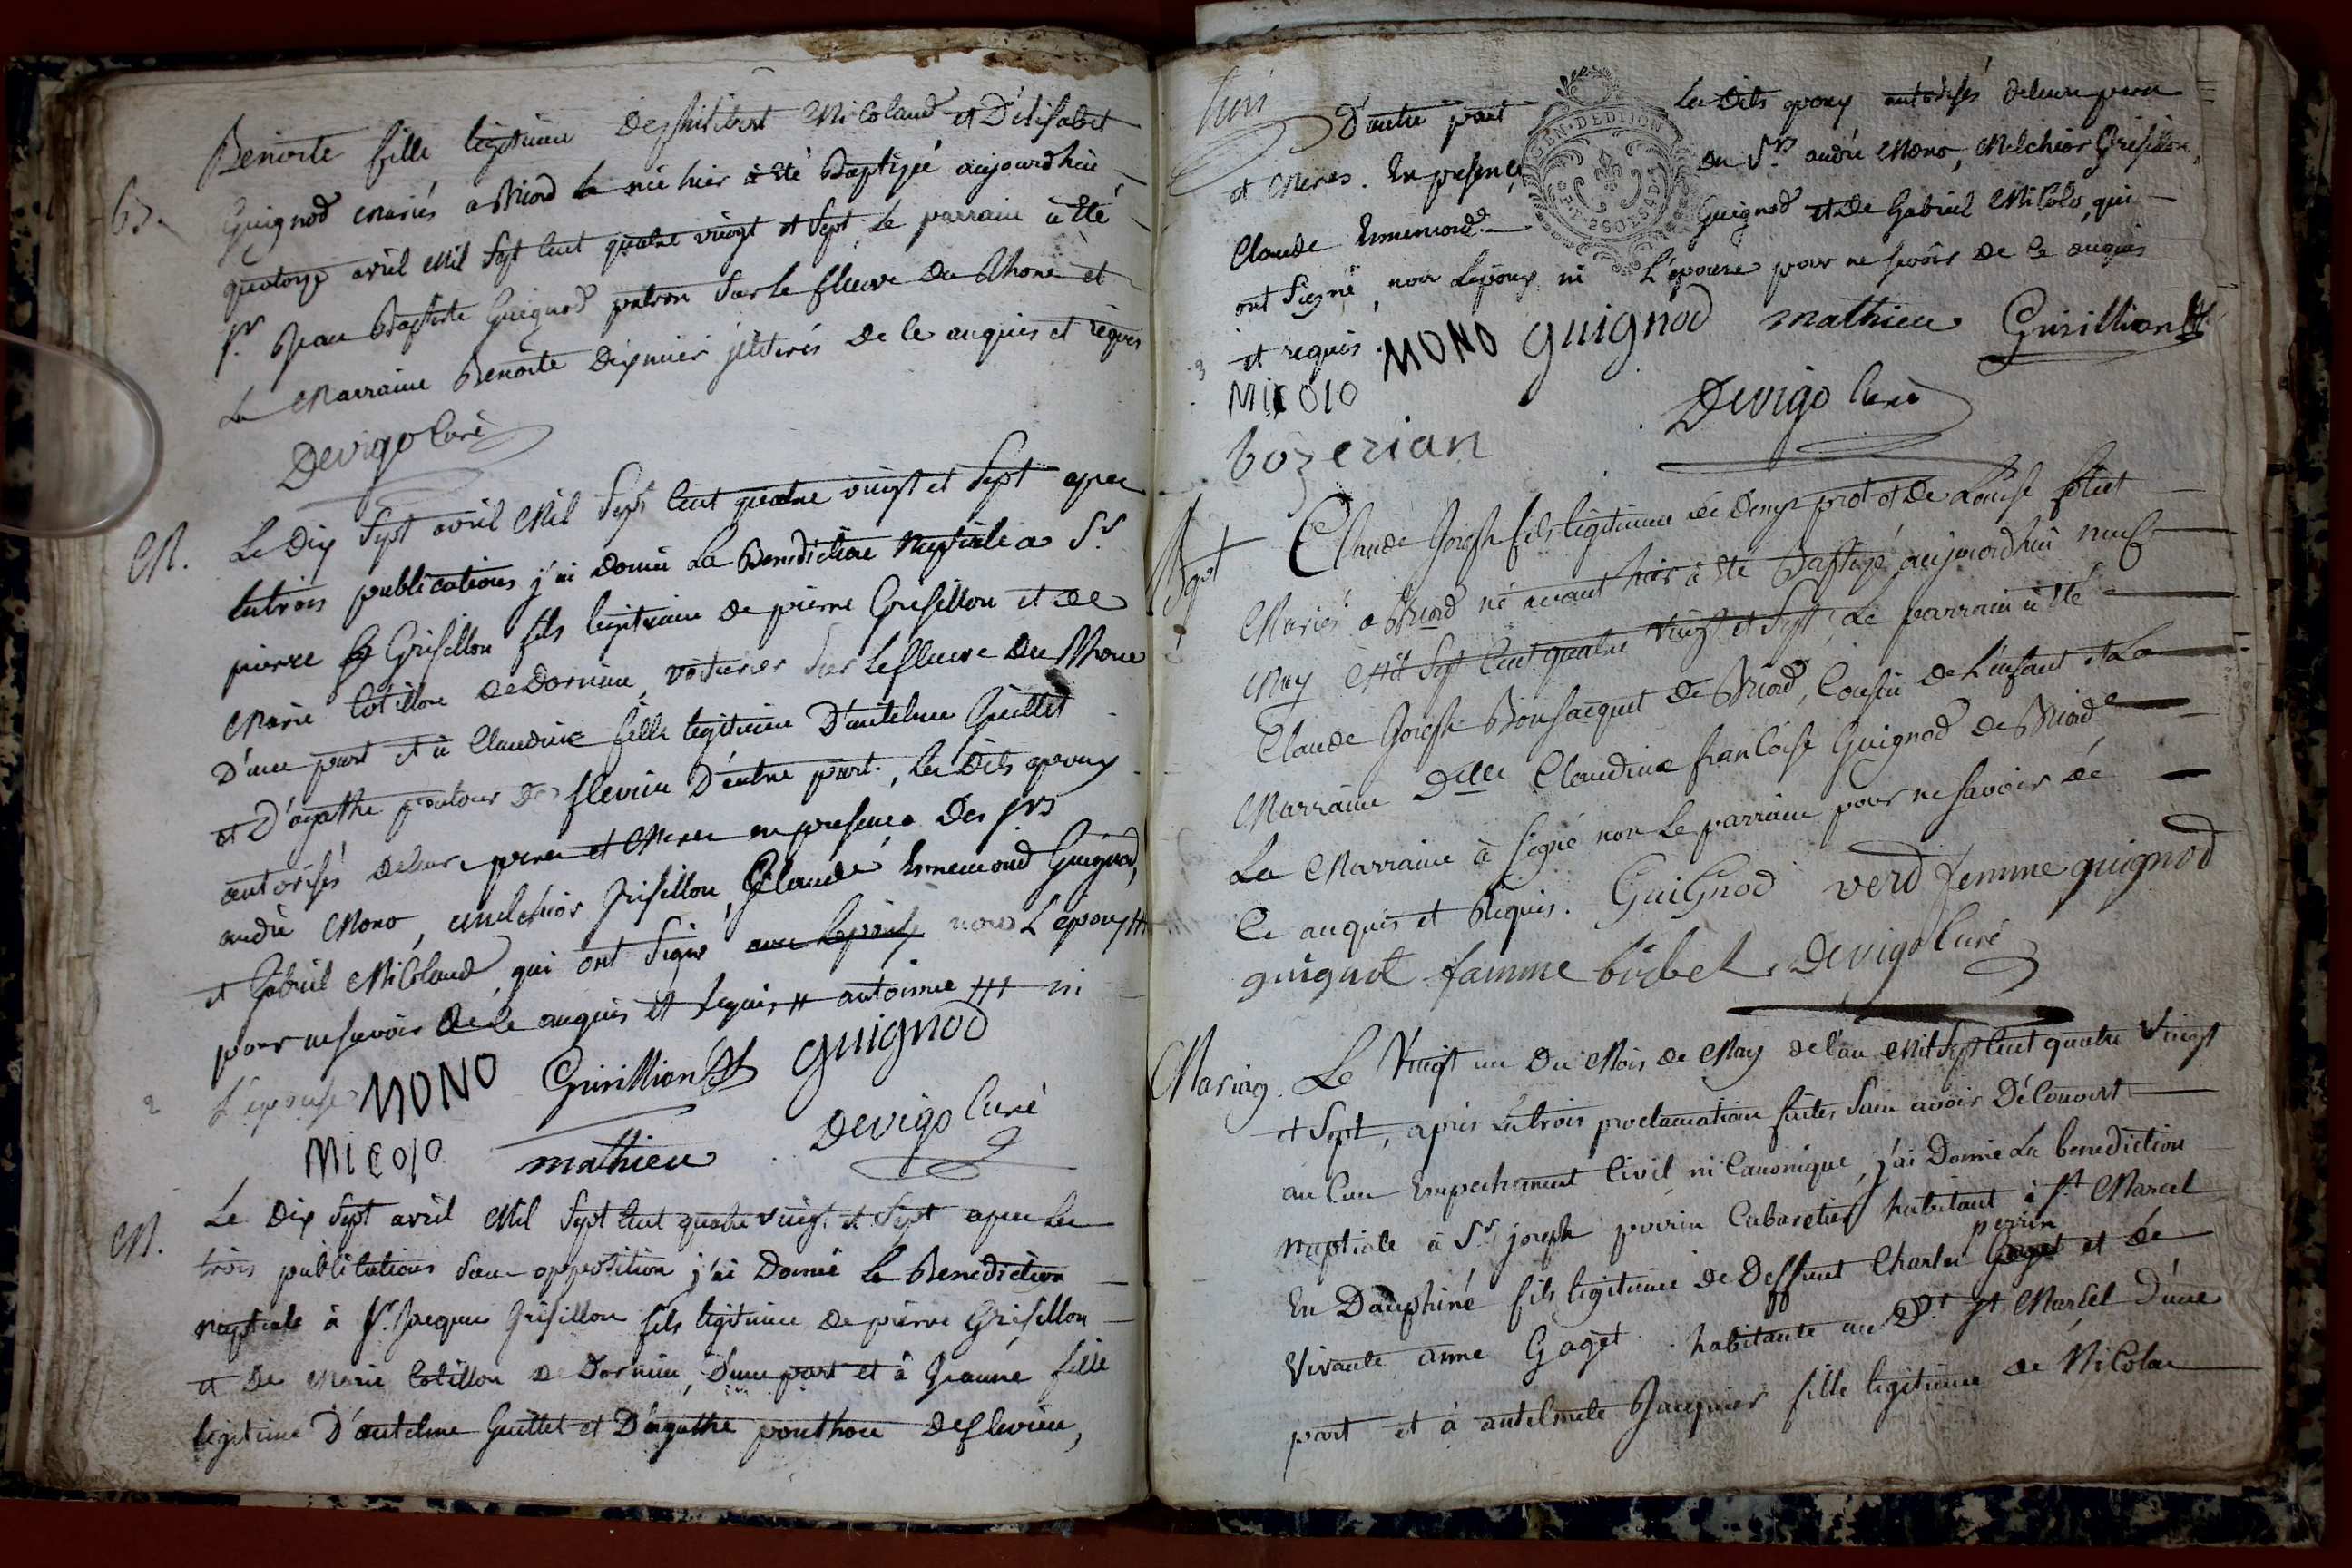 Benoite fille legitime de philibert Micolaud et D'élisabet
Guignod mariés a Briord née hier à été Baptisée aujourdhui
quatorze avril Mil Sept Cent quatre vingt et Sept. Le parrain à été
Sr. Jean Baptiste Guignod patron Sur le fleuve du Rhone et
La Marraine Benoite illiterés de ce enquis et requis
Devigo Curé
M. Le Dix Sept avril Mil Sept Cent quatre vingt et Sept apres
les trois publications j'ai donné La Benediction Nuptiale a Sr.
pierre Grisillon fils legitime de pierre Grisillon et de
Marie Cotillon de Dornieu, voiturier Sur Le fleuve Du Rhone
D'une part et à Claudine fille legitime D'antelme Guillet
et D'agathe pontous De flevieu D'autre part, les Dits epoux
autorisés de leurs peres et Meres en presence Des Srs
andré Mono, Melchior Grisillon, Claude Ennemond Guignod,
et Gabriel Micolaud qui ont Signé non L'epoux #
pour ne Savoir de ce enquis et requis # antoinne ### ni
L'epouse MONO Grisillion guignod
MicOlO mathieu Devigo Curé
M. Le Dix Sept avril Mil Sept Cent quatre vingt et Sept apres Les
trois publications sans opposition j'ai Donné la Benediction
nuptiale à Sr. Jacques Grisillon fils legitime de pierre Grisillon
et De Marie Cotillon de Dornieu, D'une part et à Jeanne fille
legitime D'antelme Guillet et D'agathe ponthou de flevieu,
D'autre part Les Dits epoux autorisés de leurs peres
et Meres. En presence des Srs andré Mono, Melchior Grisillon,
Claude Ennemond Guignod et De Gabriel Micolo, qui
ont Signé, non L'epoux ni L'epouse pour ne Savoir De ce enquis
et requis. MONO guignod mathieu Grisillion
MicOlO
bozerian Devigo Curé
GEN. DE DIJON
Bapt Claude Joseph fils legitime de Denys prot et De Louise
Mariés a Briord né avant hier à été Baptisé aujourdhui neuf
May Mil Sept Cent quatre Vingt et Sept, Le parrain à été
Claude Joseph Bonjacquet de Briord, Cousin de L'enfant et La
Marraine Dlle Claudine francoise Guignod de Briord
La Marraine à Signé non Le parrain pour ne Savoir de
Ce enquis et Requis. GuiGnod verd femme guignod
guignot famme birbel Devigo Curé
Mariag. Le Vingt un Du Mois de May de l'an Mil Sept Cent quatre Vingt
et Sept, aprés Les trois proclamations faites Sans avoir Découvert
aucun Empechement Civil ni Canonique, j'ai Donné La benediction
nuptiale à Sr. joseph perrin Cabaretier habitant à St Marcel
En Dauphiné fils legitime de Deffunt Charles perrin et de
Vivante anne Gaget habitante au Dt St Marcel D'une
part et à antelmete Jacquier fille legitime de Nicolas